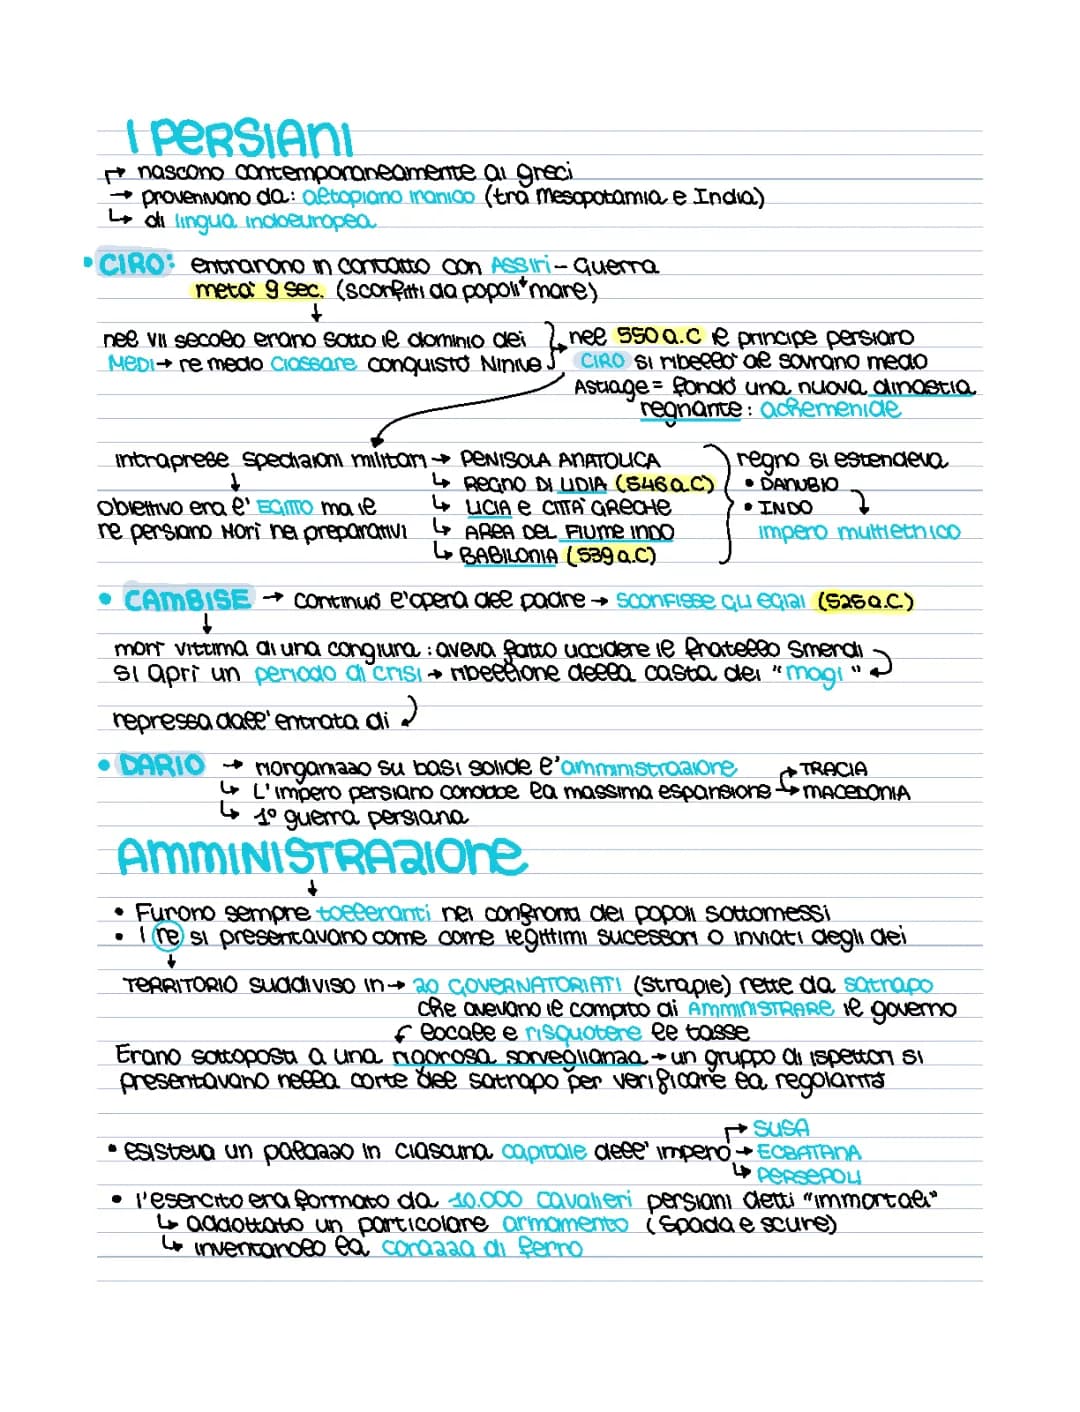 I PERSIANI
→ nascono contemporaneamente ai greci
→ provenivano da: altopiano iranico (tra Mesopotamia e India)
↳ di lingua indoeuropea
• CIRO: entrarono in contatto con Assiri - Guerra
metà 9 sec. (sconfitti da popoli mare)
↓
nel VII secolo erano sotto il dominio dei
MEDI → re medo Ciassare conquistò Ninive
nel 550 a.C il principe persiano
CIRO si ribellò al sovrano medo
Astiage = fondò una nuova dinastia
regnante: achemenide
intraprese spedizioni militari → PENISOLA ANATOLICA
↳ REGNO DI LIDIA (546 a.C)
↳ LICIA e CITTÀ GRECHE
↳ AREA DEL FIUME INDO
↳ BABILONIA (539 a.C)
regno si estendeva
• DANUBIO
• INDO
impero multietnico
↓
obiettivo era l'EGITTO ma il
re persiano morì nei preparativi
• CAMBISE → continuò l'opera del padre → SCONFISSE GLI EGIZI (525 a.C.)
↓
morì vittima di una congiura: aveva fatto uccidere il fratello Smerdi
si aprì un periodo di crisi → ribellione della casta dei "magi"
repressa dall'entrata di
• DARIO → riorganizzò su basi solide l'amministrazione
↳ L'impero persiano conobbe la massima espansione → TRACIA
→ MACEDONIA
↳ 1° guerra persiana
AMMINISTRAZIONE
↓
• Furono sempre tolleranti nei confronti dei popoli sottomessi
• I re si presentavano come come legittimi sucessori o inviati degli dei
↓
TERRITORIO suddiviso in → 20 GOVERNATORIATI (strapie) rette da satrapo
che avevano il compito di AMMINISTRARE il governo
locale e risquotere le tasse
Erano sottoposti a una rigorosa sorveglianza → un gruppo di ispettori si
presentavano nella corte del satrapo per verificare la regolarità
• esisteva un palazzo in ciascuna capitale dell'impero → SUSA
→ ECBATANA
↳ PERSEPOLI
• l'esercito era formato da 10.000 cavalieri persiani detti "immortali"
↳ addottato un particolare armamento (spada e scure)
↳ inventarolo la corazza di ferro